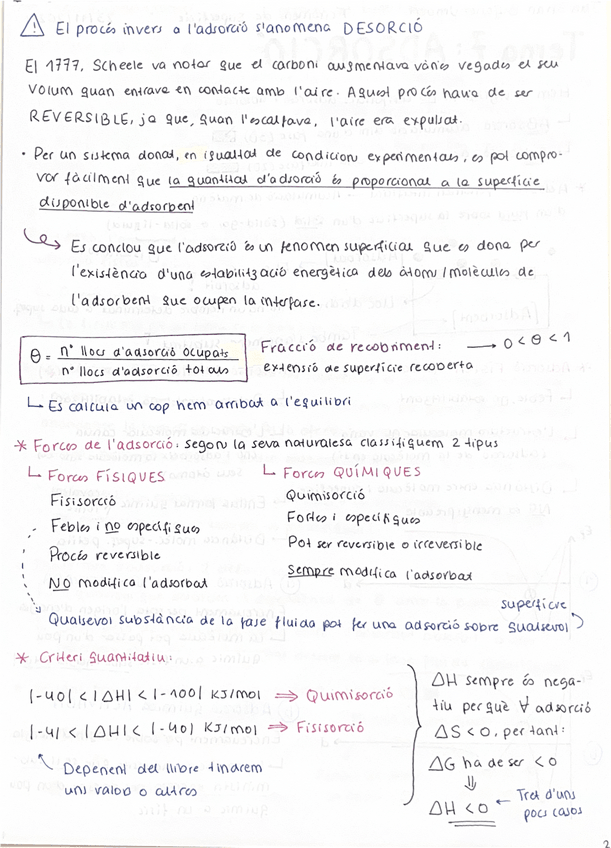 ⚠ El procés invers a l'adsorció s'anomena DESORCIÓ
El 1777, Scheele va notar que el carboni augmentava vàries vegades el seu
volum quan entrava en contacte amb l'aire. Aquest procés havia de ser
REVERSIBLE, ja que, quan l'escalfava, l'aire era expulsat.
· Per un sistema donat, en igualtat de condicions experimentals, es pot compro-
var fàcilment que la quantitat d'adsorció és proporcional a la superfície
disponible d'adsorbent
↳ Es conclou que l'adsorció és un fenomen superficial que es dona per
l'existència d'una estabilització energètica dels àtoms/molècules de
l'adsorbent que ocupen la interfase.
θ = nº llocs d'adsorció ocupats / nº llocs d'adsorció totals
Fracció de recobriment: → 0 < θ < 1
extensió de superfície recoberta
↳ Es calcula un cop hem arribat a l'equilibri
* Forces de l'adsorció: segons la seva naturalesa classifiquem 2 tipus
↳ Forces FÍSIQUES
Fisisorció
Febles i no específiques
Procés reversible
NO modifica l'adsorbat
↳ Forces QUÍMIQUES
Quimisorció
Fortes i específiques
Pot ser reversible o irreversible
Sempre modifica l'adsorbat
Qualsevol substància de la fase fluida pot fer una adsorció sobre qualsevol
superfície
* Criteri quantitatiu:
|-40| < |ΔH| < |-100| KJ/mol ⇒ Quimisorció
|-4| < |ΔH| < |-40| KJ/mol ⇒ Fisisorció
Depenent del llibre tindrem
uns valors o altres
ΔH sempre és nega-
tiu perquè ∀ adsorció
ΔS < 0, per tant:
ΔG ha de ser < 0
⇓
ΔH < 0 ← Tret d'uns
pocs casos
2